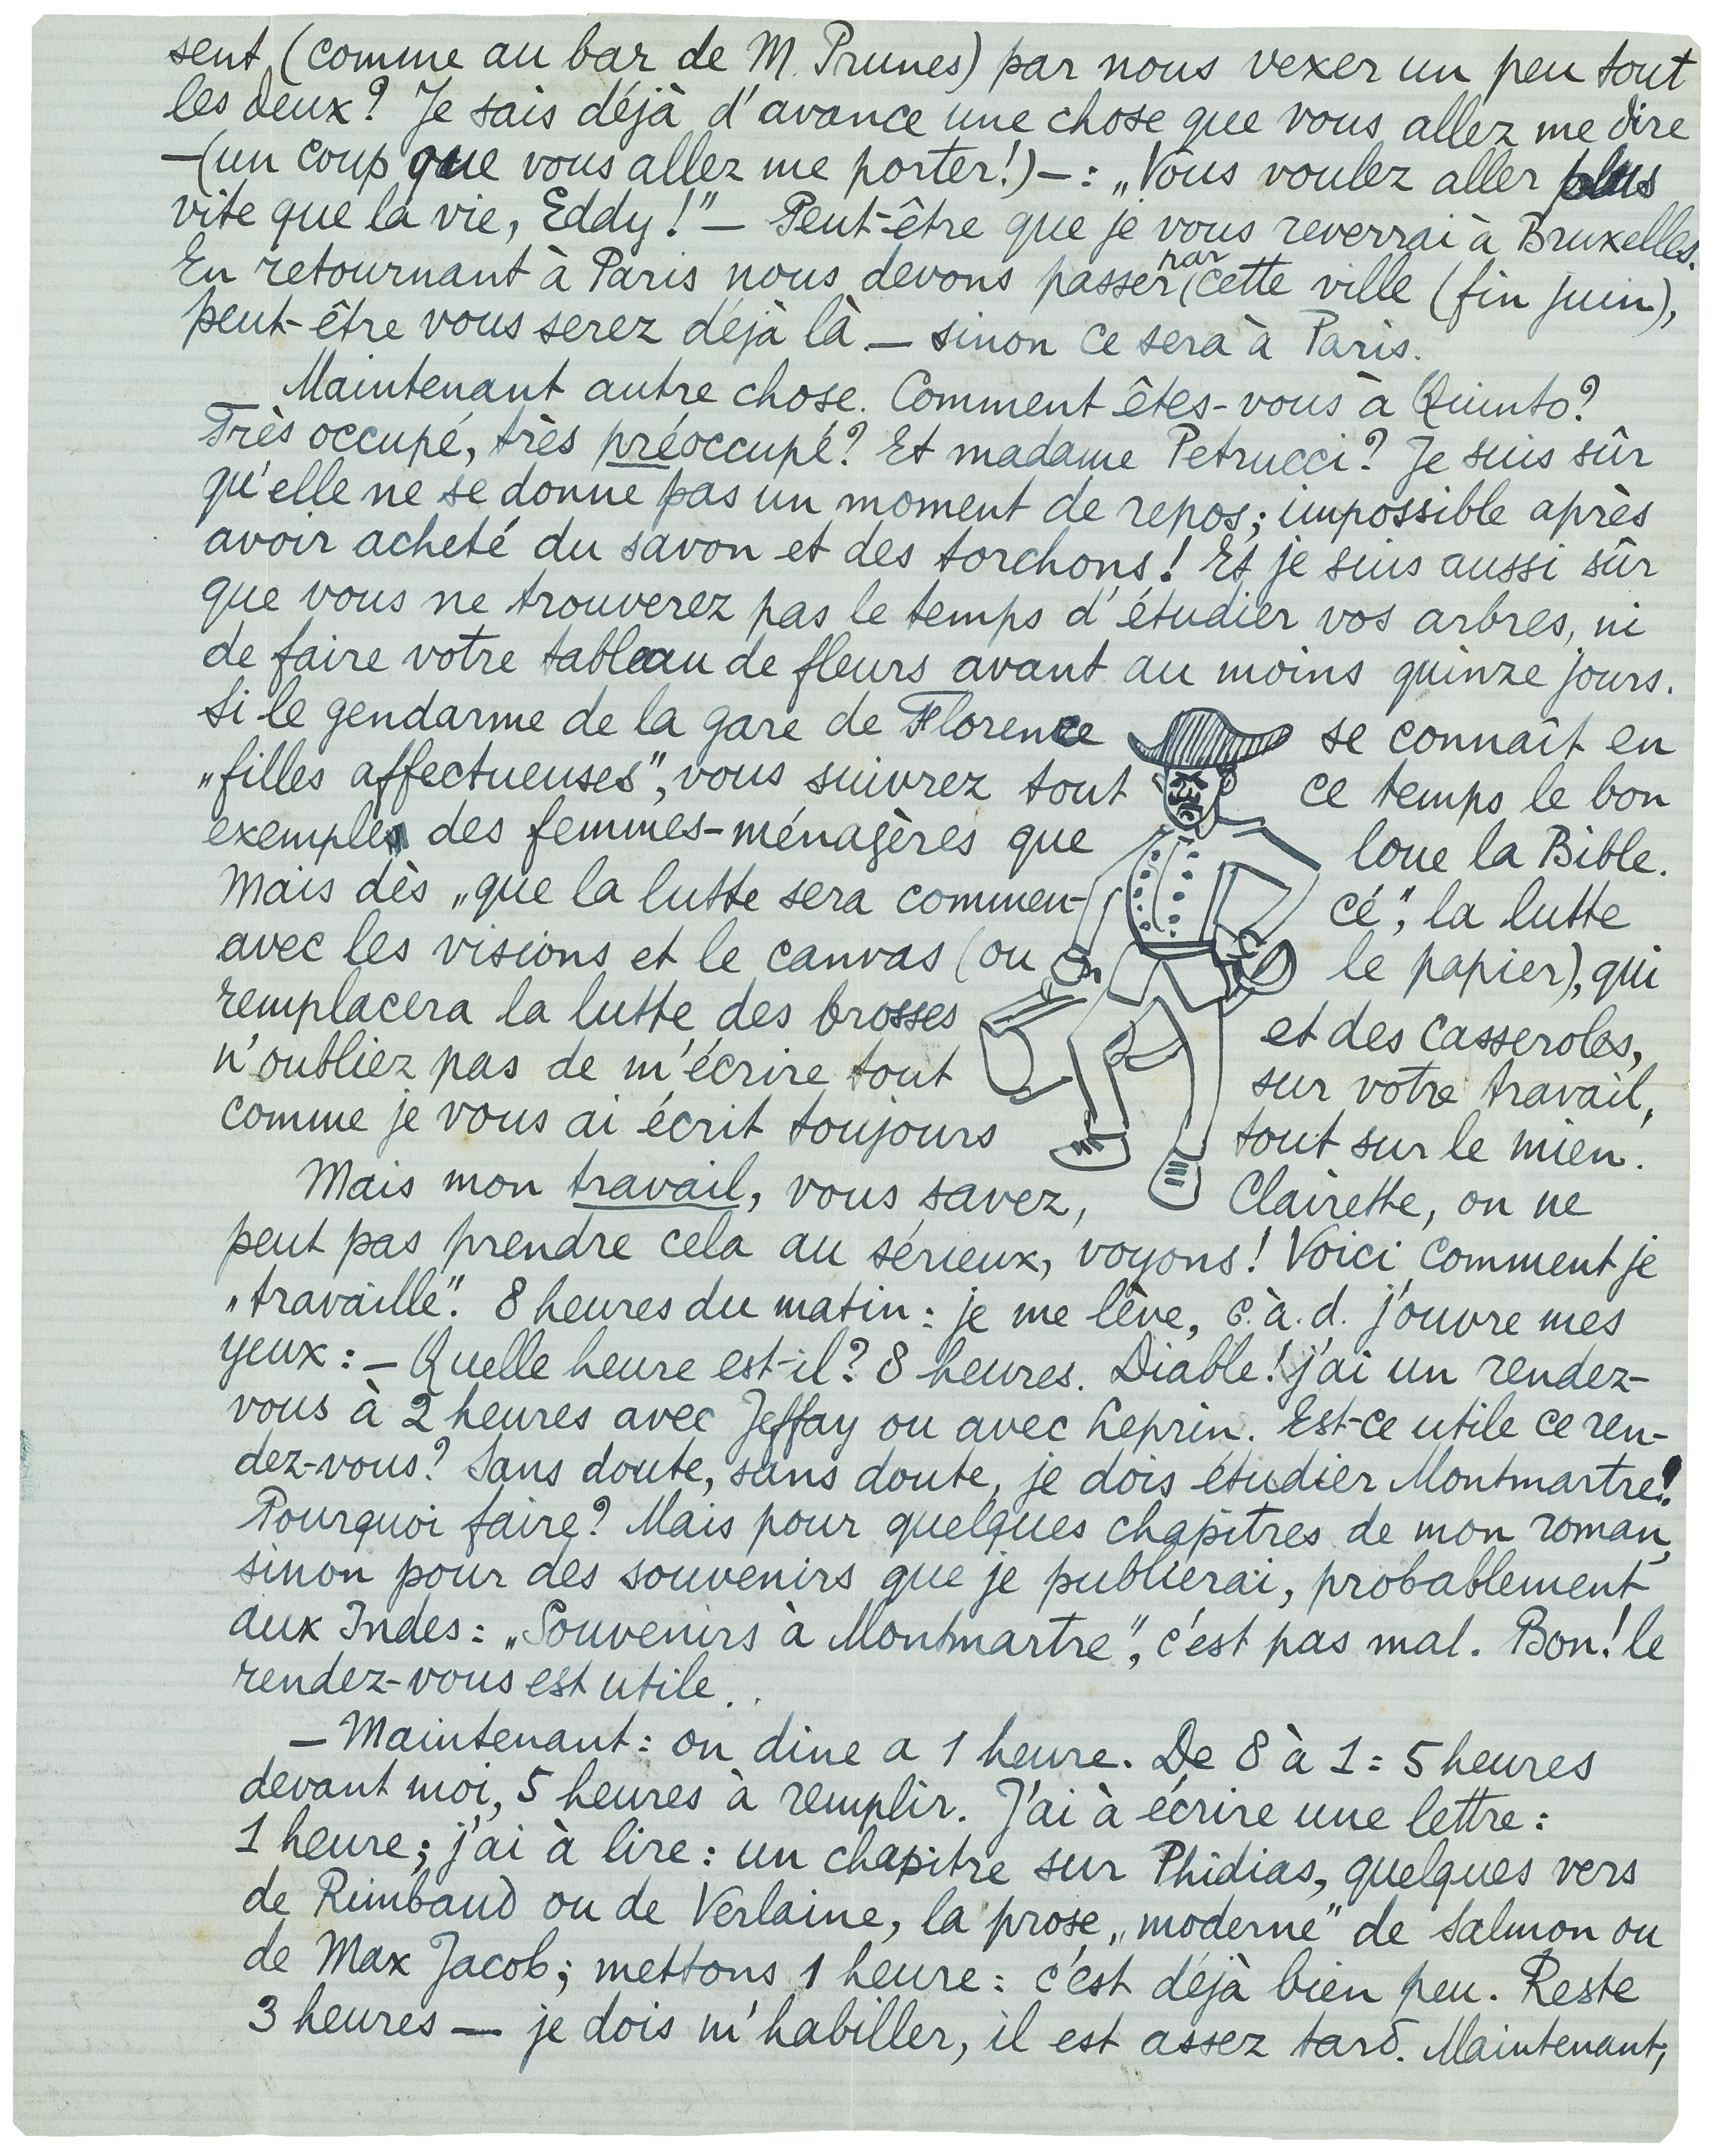 sent (comme au bar de M. Prunes) par nous vexer un peu tout
les deux? Je sais déjà d'avance une chose que vous allez me dire
—(un coup que vous allez me porter!)—: „Vous voulez aller plus
vite que la vie, Eddy!" — Peut-être que je vous reverrai à Bruxelles.
En retournant à Paris nous devons passer par cette ville (fin juin),
peut-être vous serez déjà là — sinon ce sera à Paris.
Maintenant autre chose. Comment êtes-vous à Quinto?
Très occupé, très préoccupé? Et madame Petrucci? Je suis sûr
qu'elle ne se donne pas un moment de repos; impossible après
avoir acheté du savon et des torchons! Et je suis aussi sûr
que vous ne trouverez pas le temps d'étudier vos arbres, ni
de faire votre tableau de fleurs avant au moins quinze jours.
Si le gendarme de la gare de Florence se connaît en
„filles affectueuses", vous suivrez tout ce temps le bon
exemple des femmes-ménagères que loue la Bible.
Mais dès „que la lutte sera commen-cé", la lutte
avec les visions et le canvas (ou le papier), qui
remplacera la lutte des brosses et des casseroles,
n'oubliez pas de m'écrire tout sur votre travail,
comme je vous ai écrit toujours tout sur le mien.
Mais mon travail, vous savez, Clairette, on ne
peut pas prendre cela au sérieux, voyons! Voici comment je
„travaille". 8 heures du matin: je me lève, c.à.d. j'ouvre mes
yeux: — Quelle heure est-il? 8 heures. Diable! j'ai un rendez-
vous à 2 heures avec Jeffay ou avec Leprin. Est-ce utile ce ren-
dez-vous? Sans doute, sans doute, je dois étudier Montmartre!
Pourquoi faire? Mais pour quelques chapitres de mon roman,
sinon pour des souvenirs que je publierai, probablement
aux Indes: „Souvenirs à Montmartre", c'est pas mal. Bon! le
rendez-vous est utile..
— Maintenant: on dine a 1 heure. De 8 à 1 = 5 heures
devant moi, 5 heures à remplir. J'ai à écrire une lettre:
1 heure; j'ai à lire: un chapitre sur Phidias, quelques vers
de Rimbaud ou de Verlaine, la prose „moderne" de Salmon ou
de Max Jacob; mettons 1 heure: c'est déjà bien peu. Reste
3 heures — je dois m'habiller, il est assez tard. Maintenant,